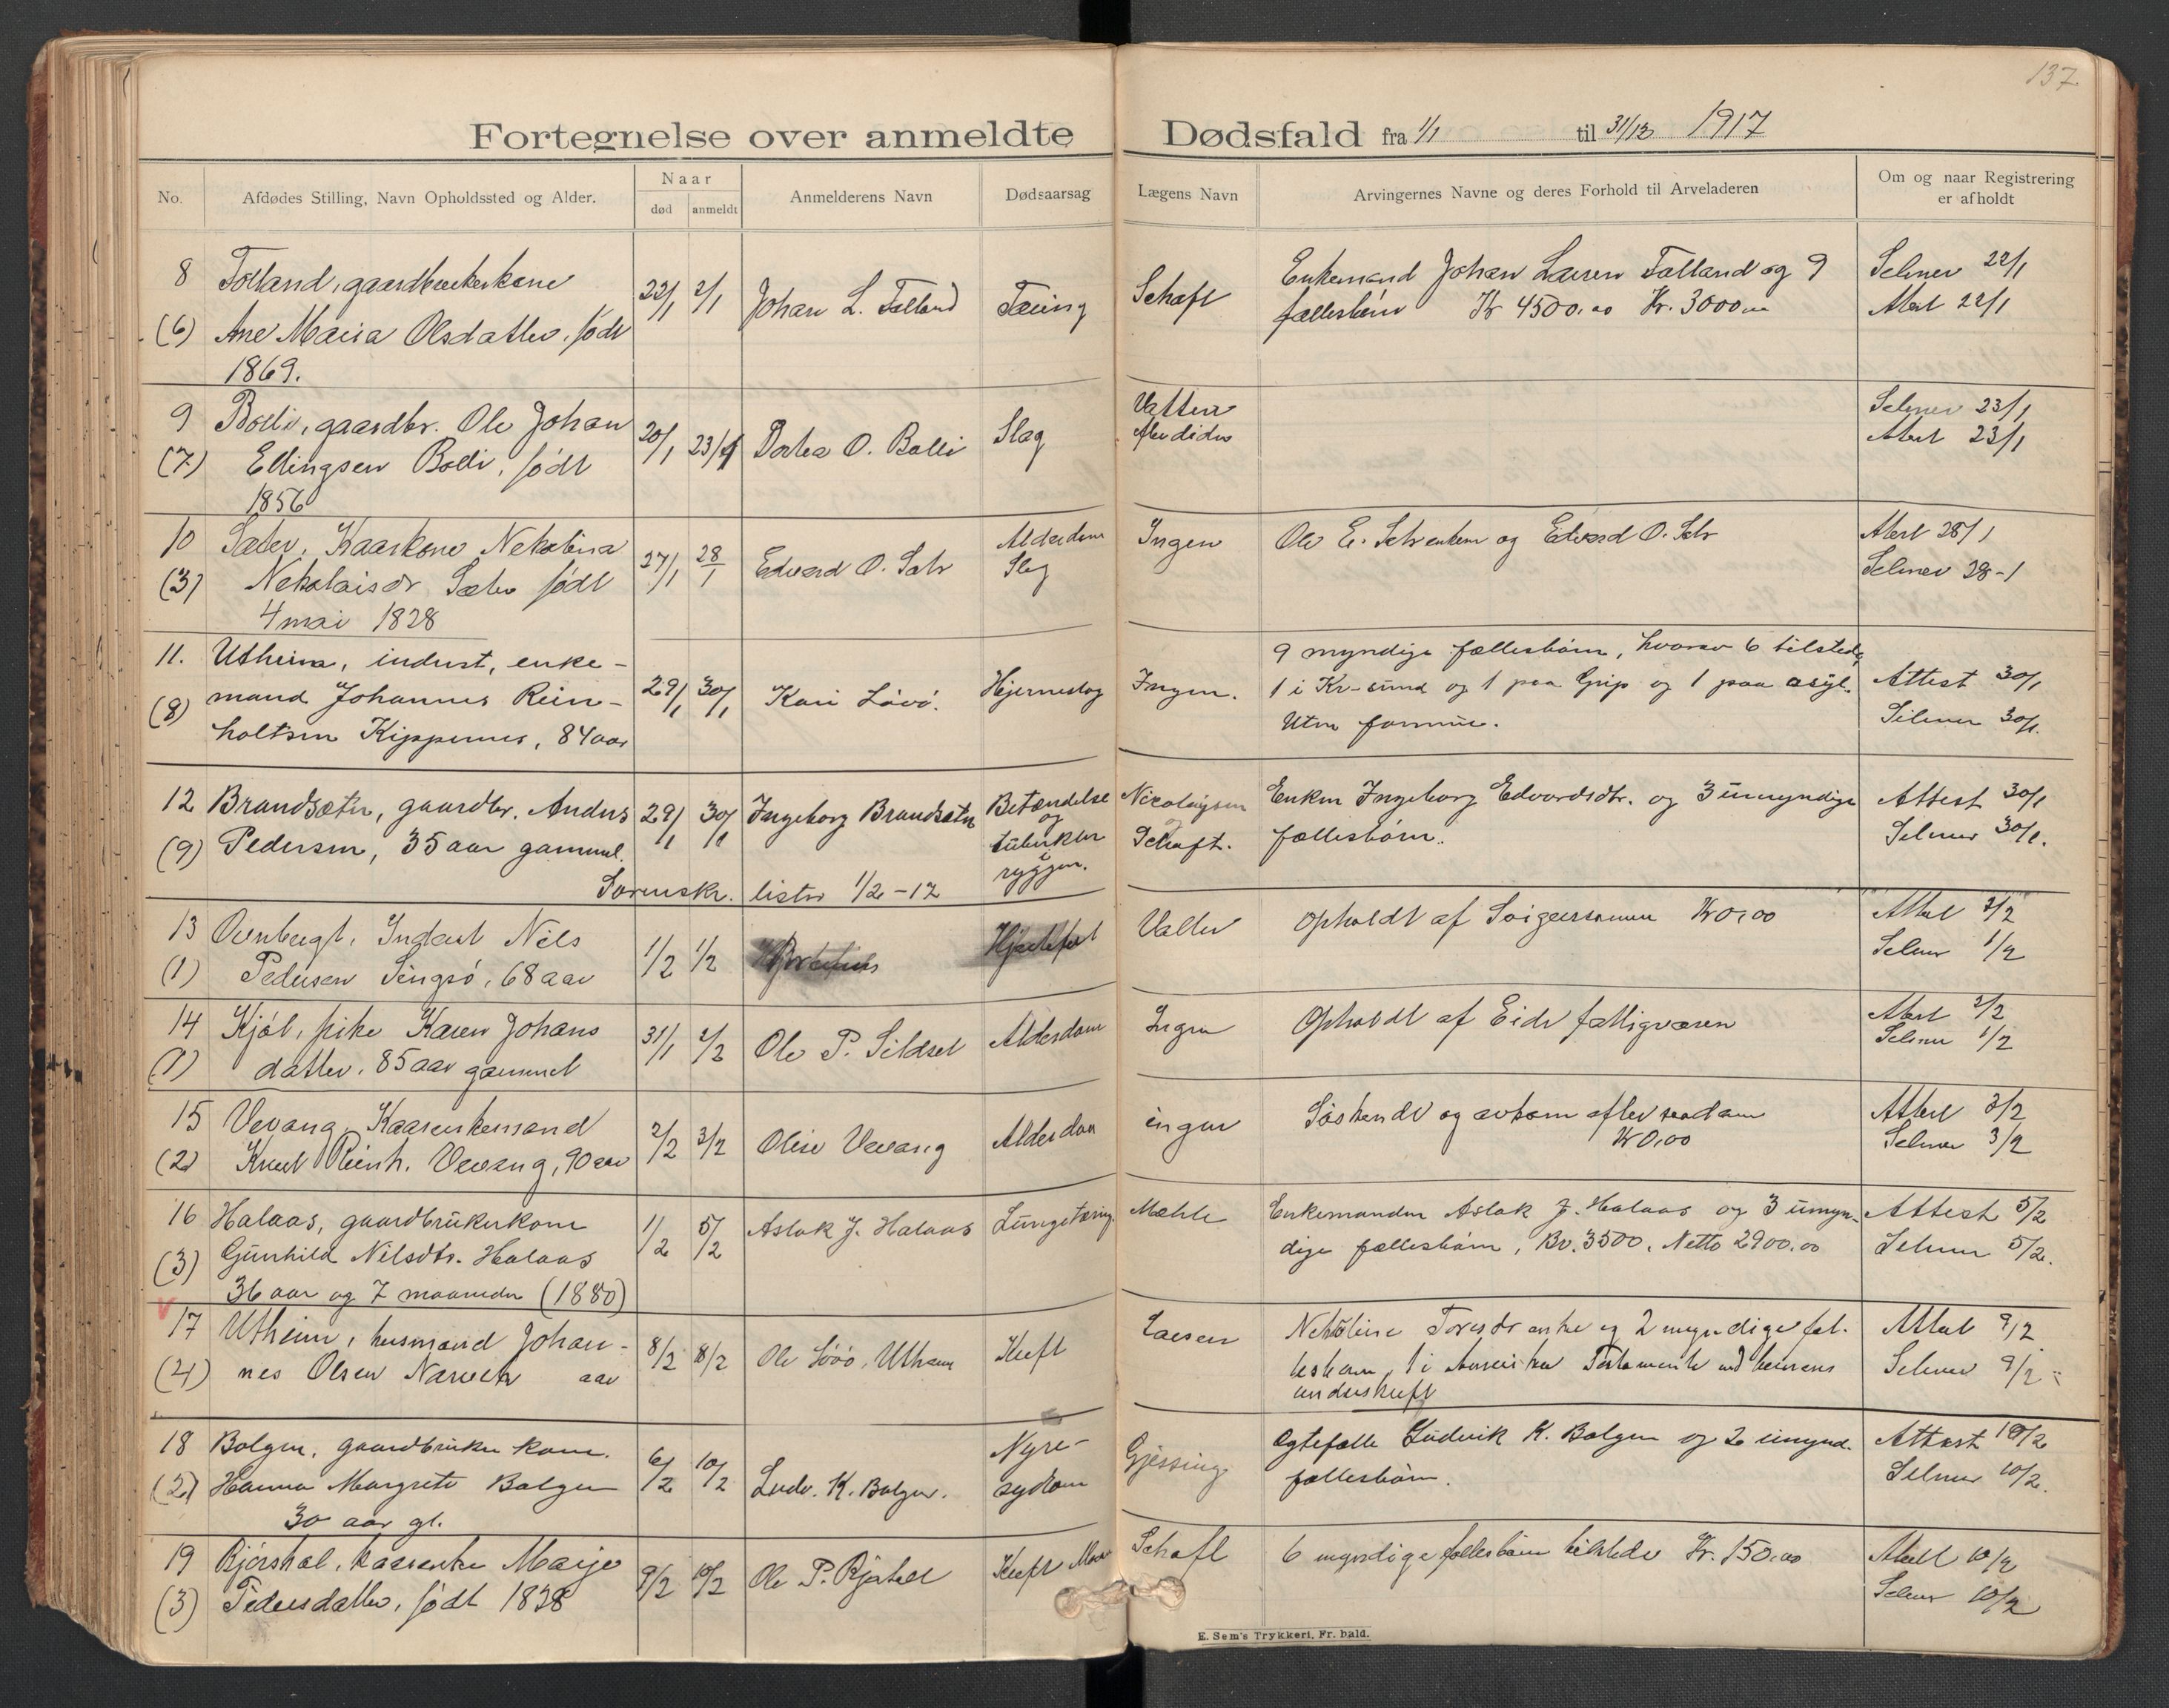 137
Fortegnelse over anmeldte Dødsfald fra 1/1 til 31/12 1917
No. Afdødes Stilling, Navn Opholdssted og Alder. Naar død anmeldt Anmelderens Navn Dødsaarsag Lægens Navn Arvingernes Navne og deres Forhold til Arveladeren Om og naar Registrering er afholdt
8 Folland, gaardbrukerkone 22/1 2/1 Johan L. Folland Tæring Schaft Enkemand Johan Larsen Falland og 9 Selmer 22/1
(6) Ane Maria Olsdatter, født fællesbørn Kr 4500.00 Kr. 3000.00 Atest 22/1
1869.
9 Bolli, gaardbr. Ole Johan 20/1 23/1 Dortea O. Bolli Slag Selmer 23/1
(7) Ellingsen Bolli, født Atest 23/1
1856
10 Sæter, Kaarkone Nekolina 27/1 28/1 Edvard O. Sætr Alderdom Ingen Ole E. og Edvard O. Sætr Atest 28/1
(3) Nekolaisdr Sæter født Slag Selmer 28-1
4 mai 1828
11. Utheim, inderst, enke- 29/1 30/1 Kari Løvø. Hjerneslag Ingen. 9 myndige fællesbørn, hvorav 6 tilstede,
(8) mand Johannes Rein- 1 i Kr-sund og 1 paa Grip og 1 paa asyl. Attest 30/1
holtsen Kippernes, 84 aar Uten formue. Selmer 30/1.
12 Brandsæter, gaardbr. Anders 29/1 30/1 Ingeborg Brandsæter Betændelse Nicolaysen Enken Ingeborg Edvardsdtr. og 3 umyndige Attest 30/1
(9) Pedersen, 35 aar gammel. og tuberkler i ryggen. og Schaft. fællesbørn. Selmer 30/1.
Sorenskr. lister 1/2-17
13 Inderst Nils 1/2 1/2 Hjertefeil Opholdt af Svigersønnen Kr 0,00 Attest 1/2
(1) Pedersen Singsø, 68 aar Selmer 1/2
14 Kjøl, pike Karen Johans 31/1 2/2 Ole P. Sildset Alderdom Ingen Opholdt af Eide fattigvæsen Atest 2/2
(1) datter, 85 aar gammel Selmer 1/2
15 Vevang, Kaarenkemand 2/2 3/2 Oline Vevang Alderdom ingen Søskende og avkom efter saadan Attest 3/2
(2) Knut Reinh. Vevang, 90 aar Kr 0,00 Selmer 3/2
16 Halaas, gaardbrukerkone 1/2 5/2 Aslak J. Halaas Lungetæring. Mæhle Enkemanden Aslak J. Halaas og 3 umyn- Attest 5/2
(3) Gunhild Nilsdtr. Halaas dige fællesbørn, Bv. 3500. Netto 2900.00 Selmer 5/2.
36 aar og 7 maaneder (1880)
17 Utheim, husmand Johan- 8/2 8/2 Ole Løvø, Utheim Kreft Larsen Nekoline Toresdr enke og 2 myndige fæl- Attest 9/2
(4) nes Olsen aar lesbørn, 1 i Amerika Testamente med Selmer 9/2
underskrift
18 Bolgen, gaardbruker kone. 6/2 10/2 Ludv. K. Bolgen. Nyre- Gjessing Egtefælle Ludvik K. Bolgen og 2 umynd. Attest 10/2
(2) Hanna Margrete Bolgen sygdom fællesbørn. Selmer 10/2.
30 aar gl.
19 kaarenke Marje 9/2 10/2 Ole P. Kreft Schaft 6 myndige fællesbørn tilstede Kr. 150.00 Attest 10/2
(3) Pedersdatter, født 1838 Selmer 10/2
E. Sem's Trykkeri, Fr. hald.